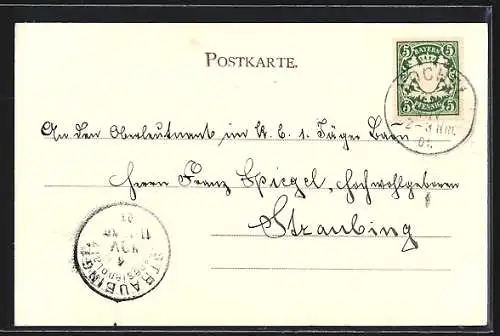 POSTKARTE.
5 BAYERN 5
5 PFENNIG 5
NOV
2-3 NM.
01.
An den Oberleutnant im K. b. 1. Jäger Baon
Herrn Franz Spiegel, Hochwohlgeboren
Straubing
STRAUBING
4
NOV